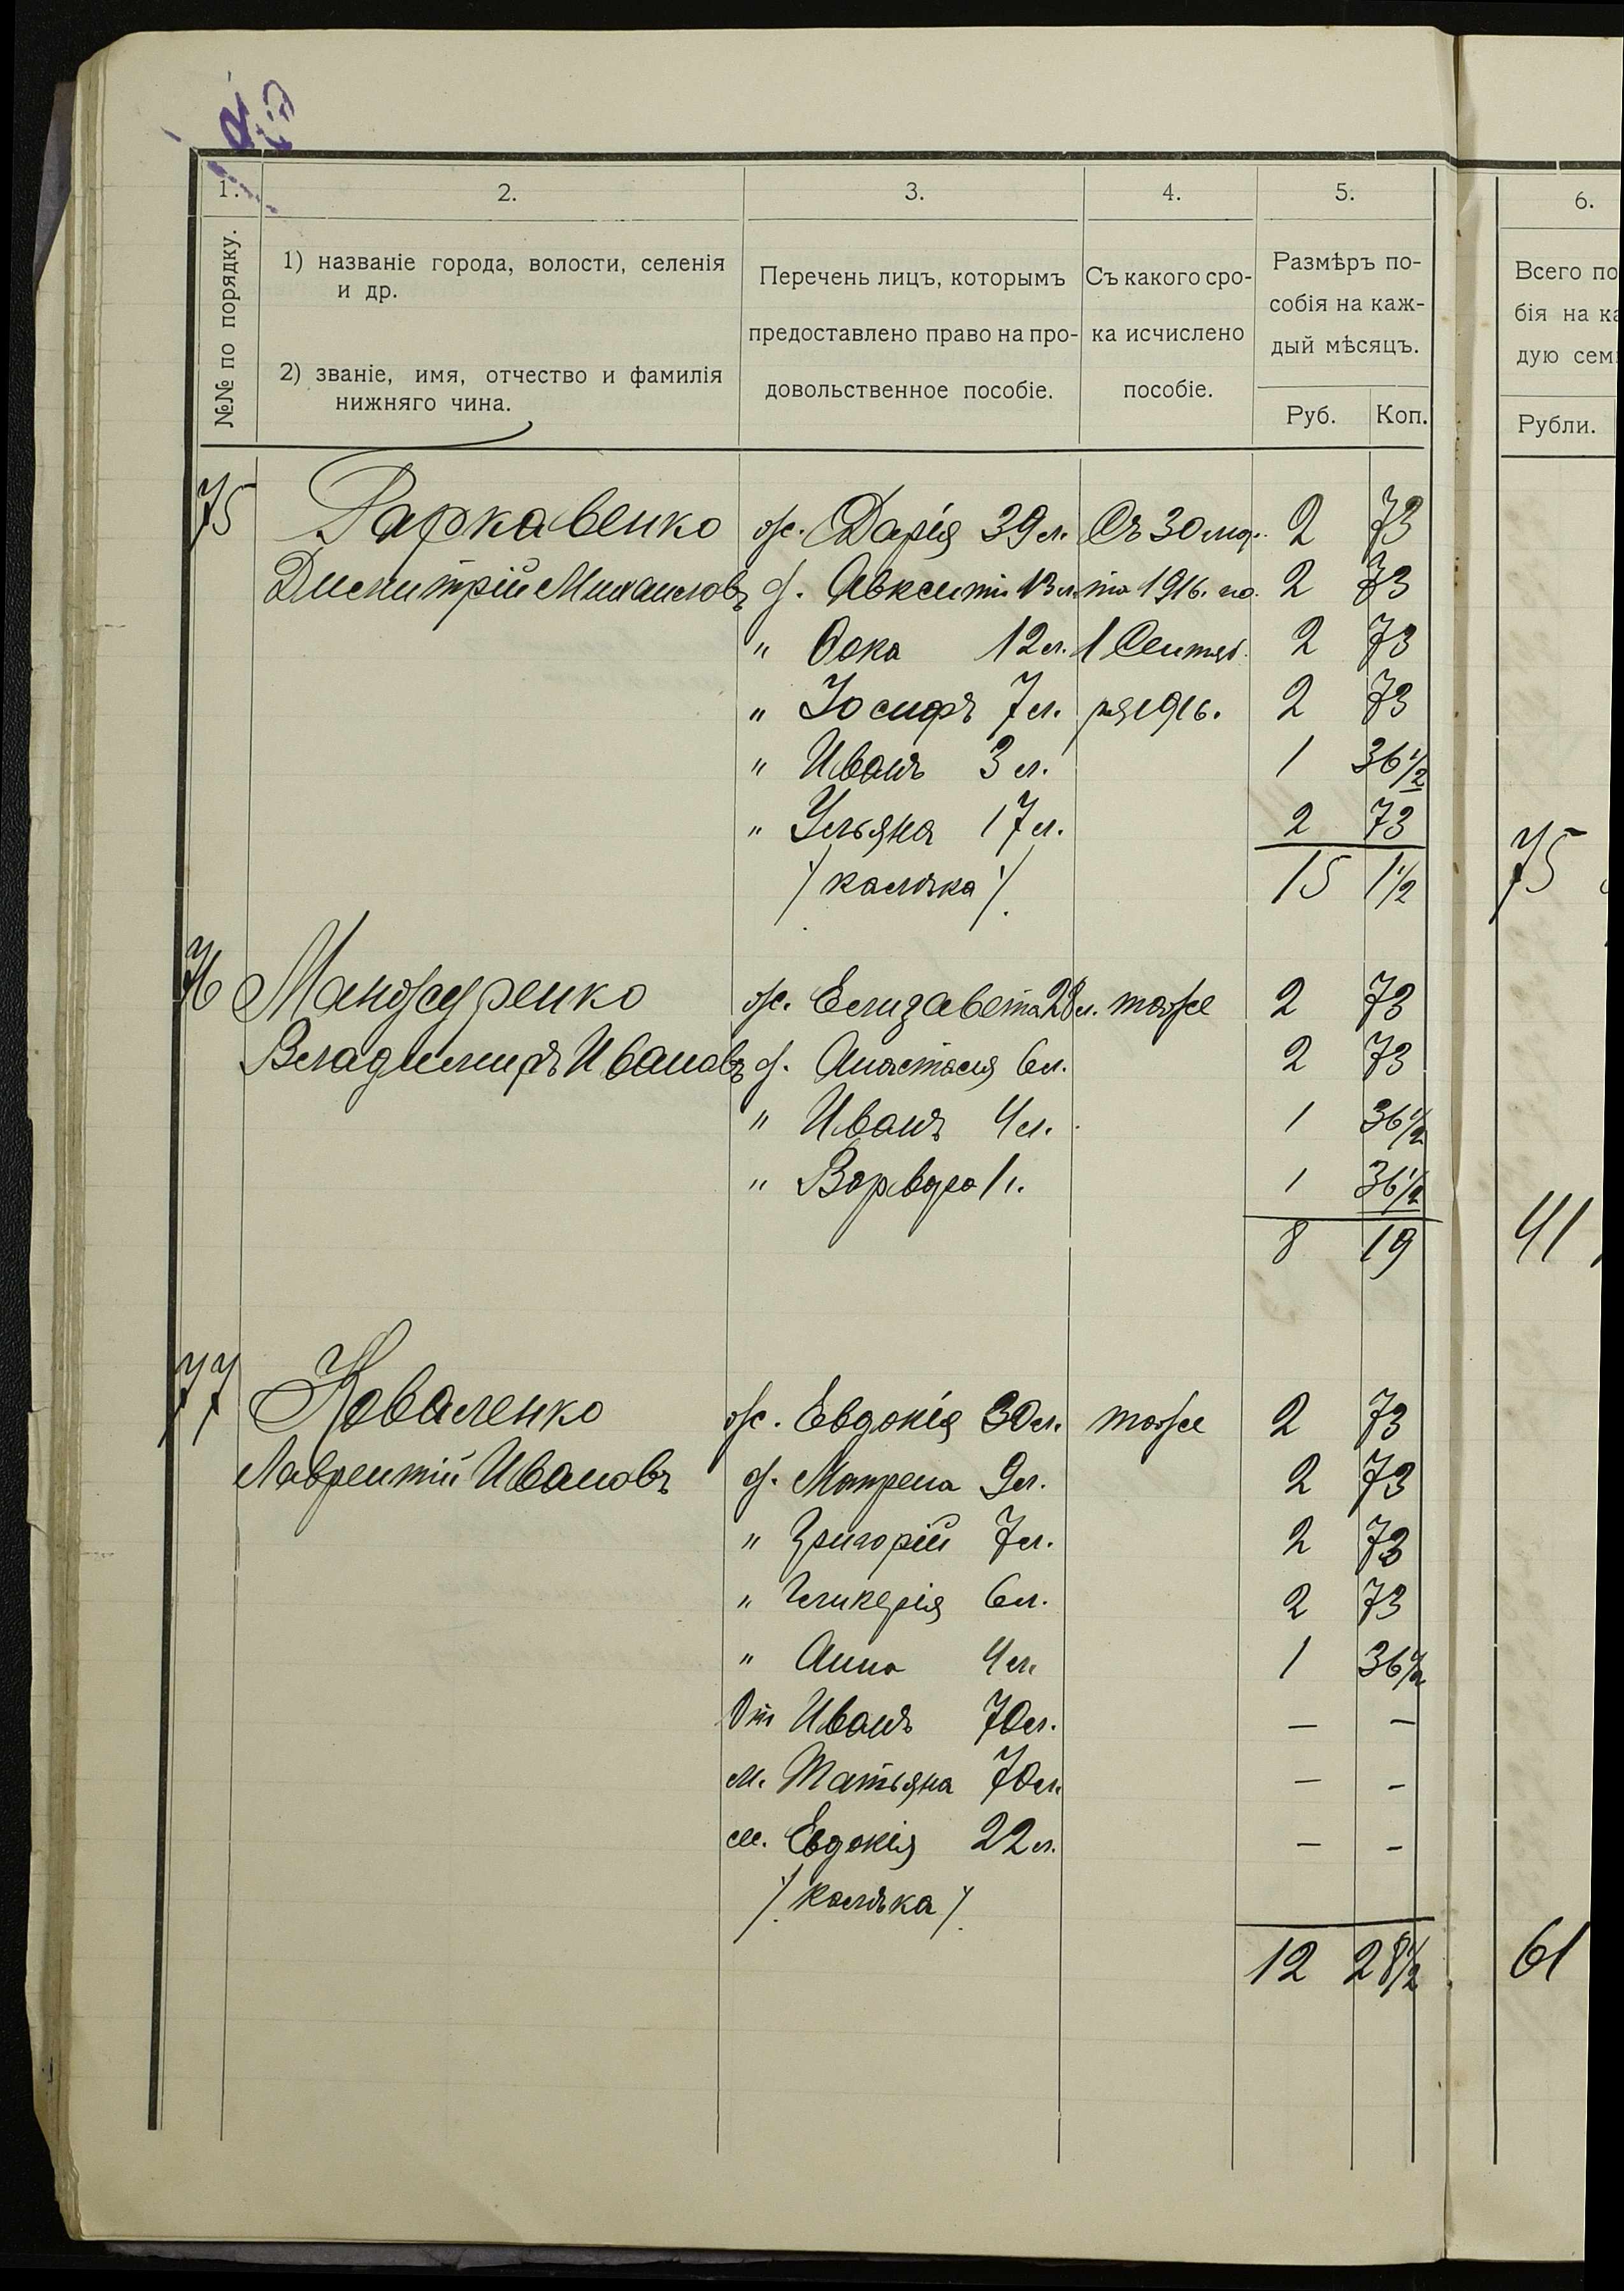 1. 2. 3. 4. 5. 6.
№№ по порядку.
1) названіе города, волости, селенія
и др.
2) званіе, имя, отчество и фамилія
нижняго чина.
Перечень лицъ, которымъ
предоставлено право на про-
довольственное пособіе.
Съ какого сро-
ка исчислено
пособіе.
Размѣръ по-
собія на каж-
дый мѣсяцъ.
Руб. Коп.
Всего по
бія на ка
дую сем
Рубли.
75 Гаркавенко ж. Дарія 39 л. Съ 30 2 73
Дмитрій Михаиловъ д. Авксентій 13 л. 1916. по 2 73
" Фока 12 л. 1 Сентяб 2 73
" Іосифъ 7 л. ря 1916. 2 73
" Иванъ 3 л. 1 36 1/2
" Ульяна 17 л. 2 73
/калѣка/. 15 1 1/2
75
76 Манжуренко ж. Елизавета 28 л. тоже 2 73
Владимиръ Ивановъ д. Анастасія 6 л. 2 73
" Иванъ 4 л. 1 36 1/2
" Варвара 1 г. 1 36 1/2
8 19
41
77 Коваленко ж. Евдокія 30 л. тоже 2 73
Лаврентій Ивановъ д. Матрена 9 л. 2 73
" Григорій 7 л. 2 73
" Гликерія 6 л. 2 73
" Анна 4 л. 1 36 1/2
От Иванъ 70 л. — —
м. Татьяна 70 л. — -
Евдокія 22 л. — -
/калѣка/.
12 28 1/2
61